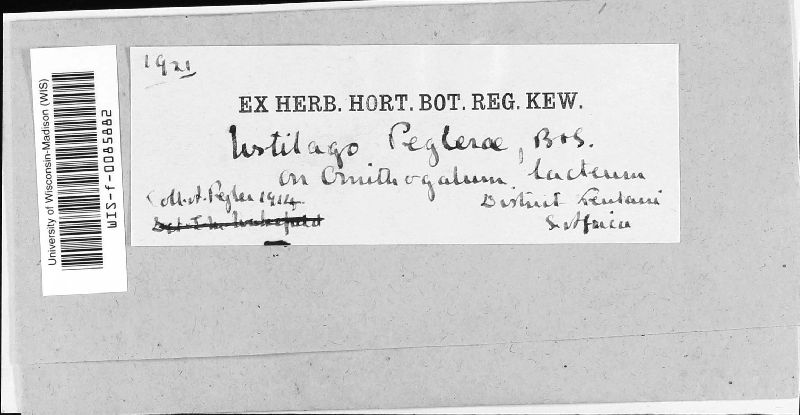 University of Wisconsin-Madison (WIS)
WIS-f-0085882
1921
EX HERB. HORT. BOT. REG. KEW.
Ustilago Peglerae, B&S.
on Ornithogalum lacteum
Coll. A. Pegler 1914.
District Kentani
S. Africa